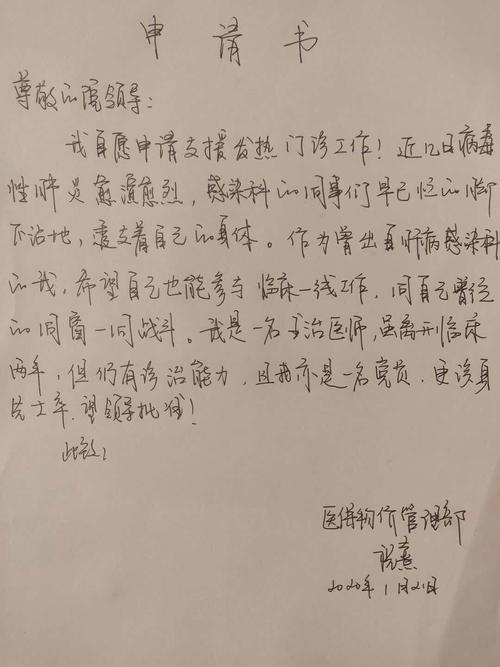 申请书
尊敬的院领导：
我自愿申请支援发热门诊工作！近几日病毒
性肺炎愈演愈烈，感染科的同事们早已忙的脚
不沾地，透支着自己的身体。作为曾出自肝病感染科
的我，希望自己也能参与临床一线工作，同自己曾经
的同窗一同战斗。我是一名主治医师，虽离开临床
两年，但仍有诊治能力，且我亦是一名党员，更该身
先士卒，望领导批准！
此致！
医保物价管理部
2020年1月21日